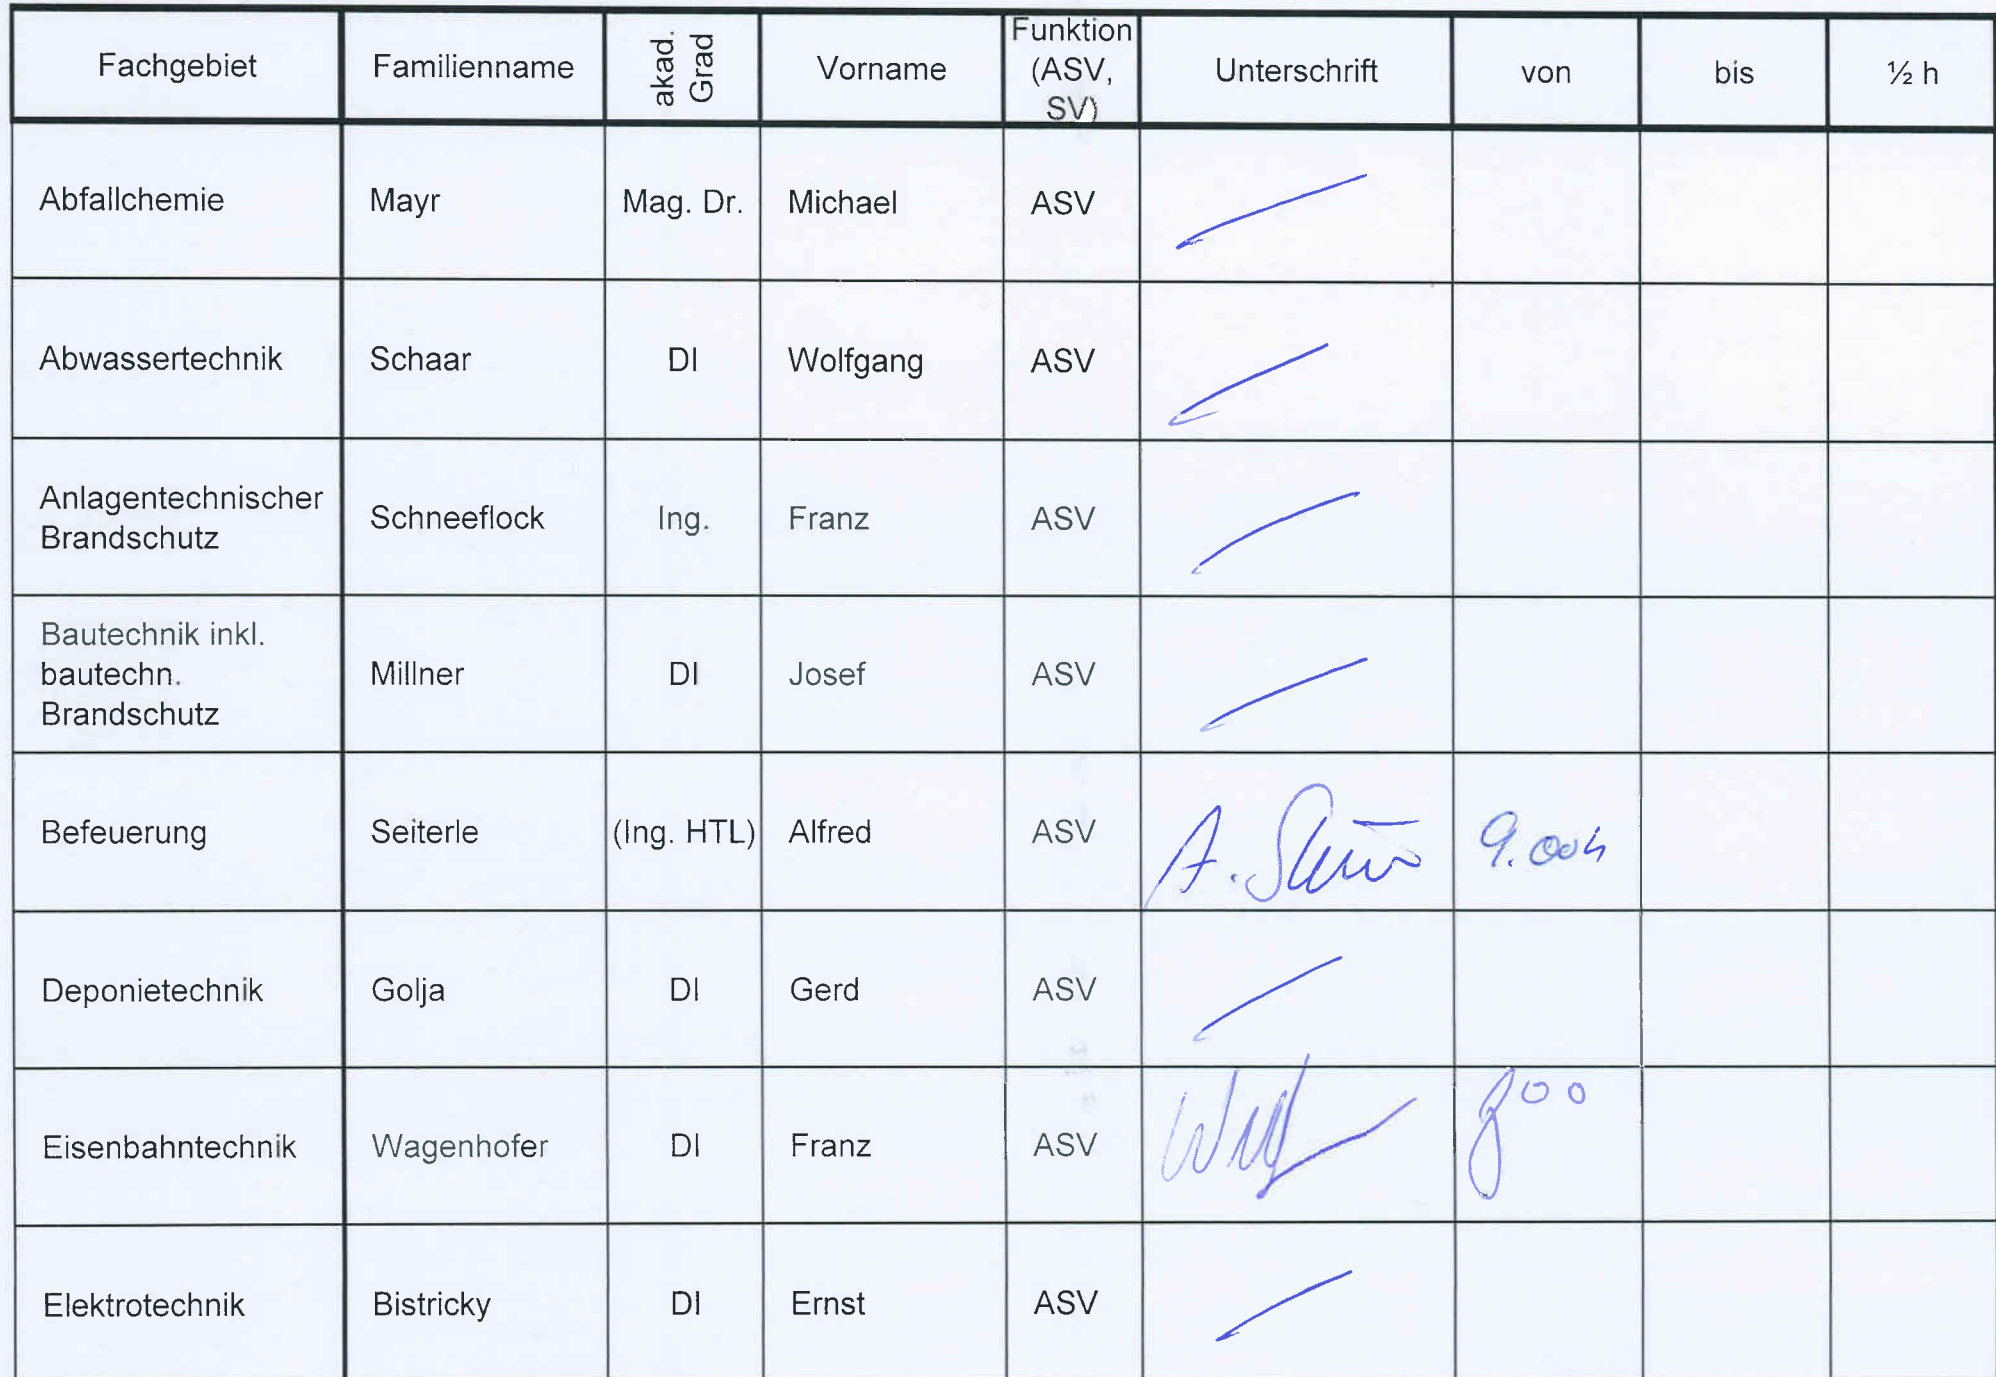 Fachgebiet Familienname akad. Grad Vorname Funktion (ASV, SV) Unterschrift von bis ½ h
Abfallchemie Mayr Mag. Dr. Michael ASV
Abwassertechnik Schaar DI Wolfgang ASV
Anlagentechnischer Brandschutz Schneeflock Ing. Franz ASV
Bautechnik inkl. bautechn. Brandschutz Millner DI Josef ASV
Befeuerung Seiterle (Ing. HTL) Alfred ASV A. 9.00h
Deponietechnik Golja DI Gerd ASV
Eisenbahntechnik Wagenhofer DI Franz ASV 8 00
Elektrotechnik Bistricky DI Ernst ASV